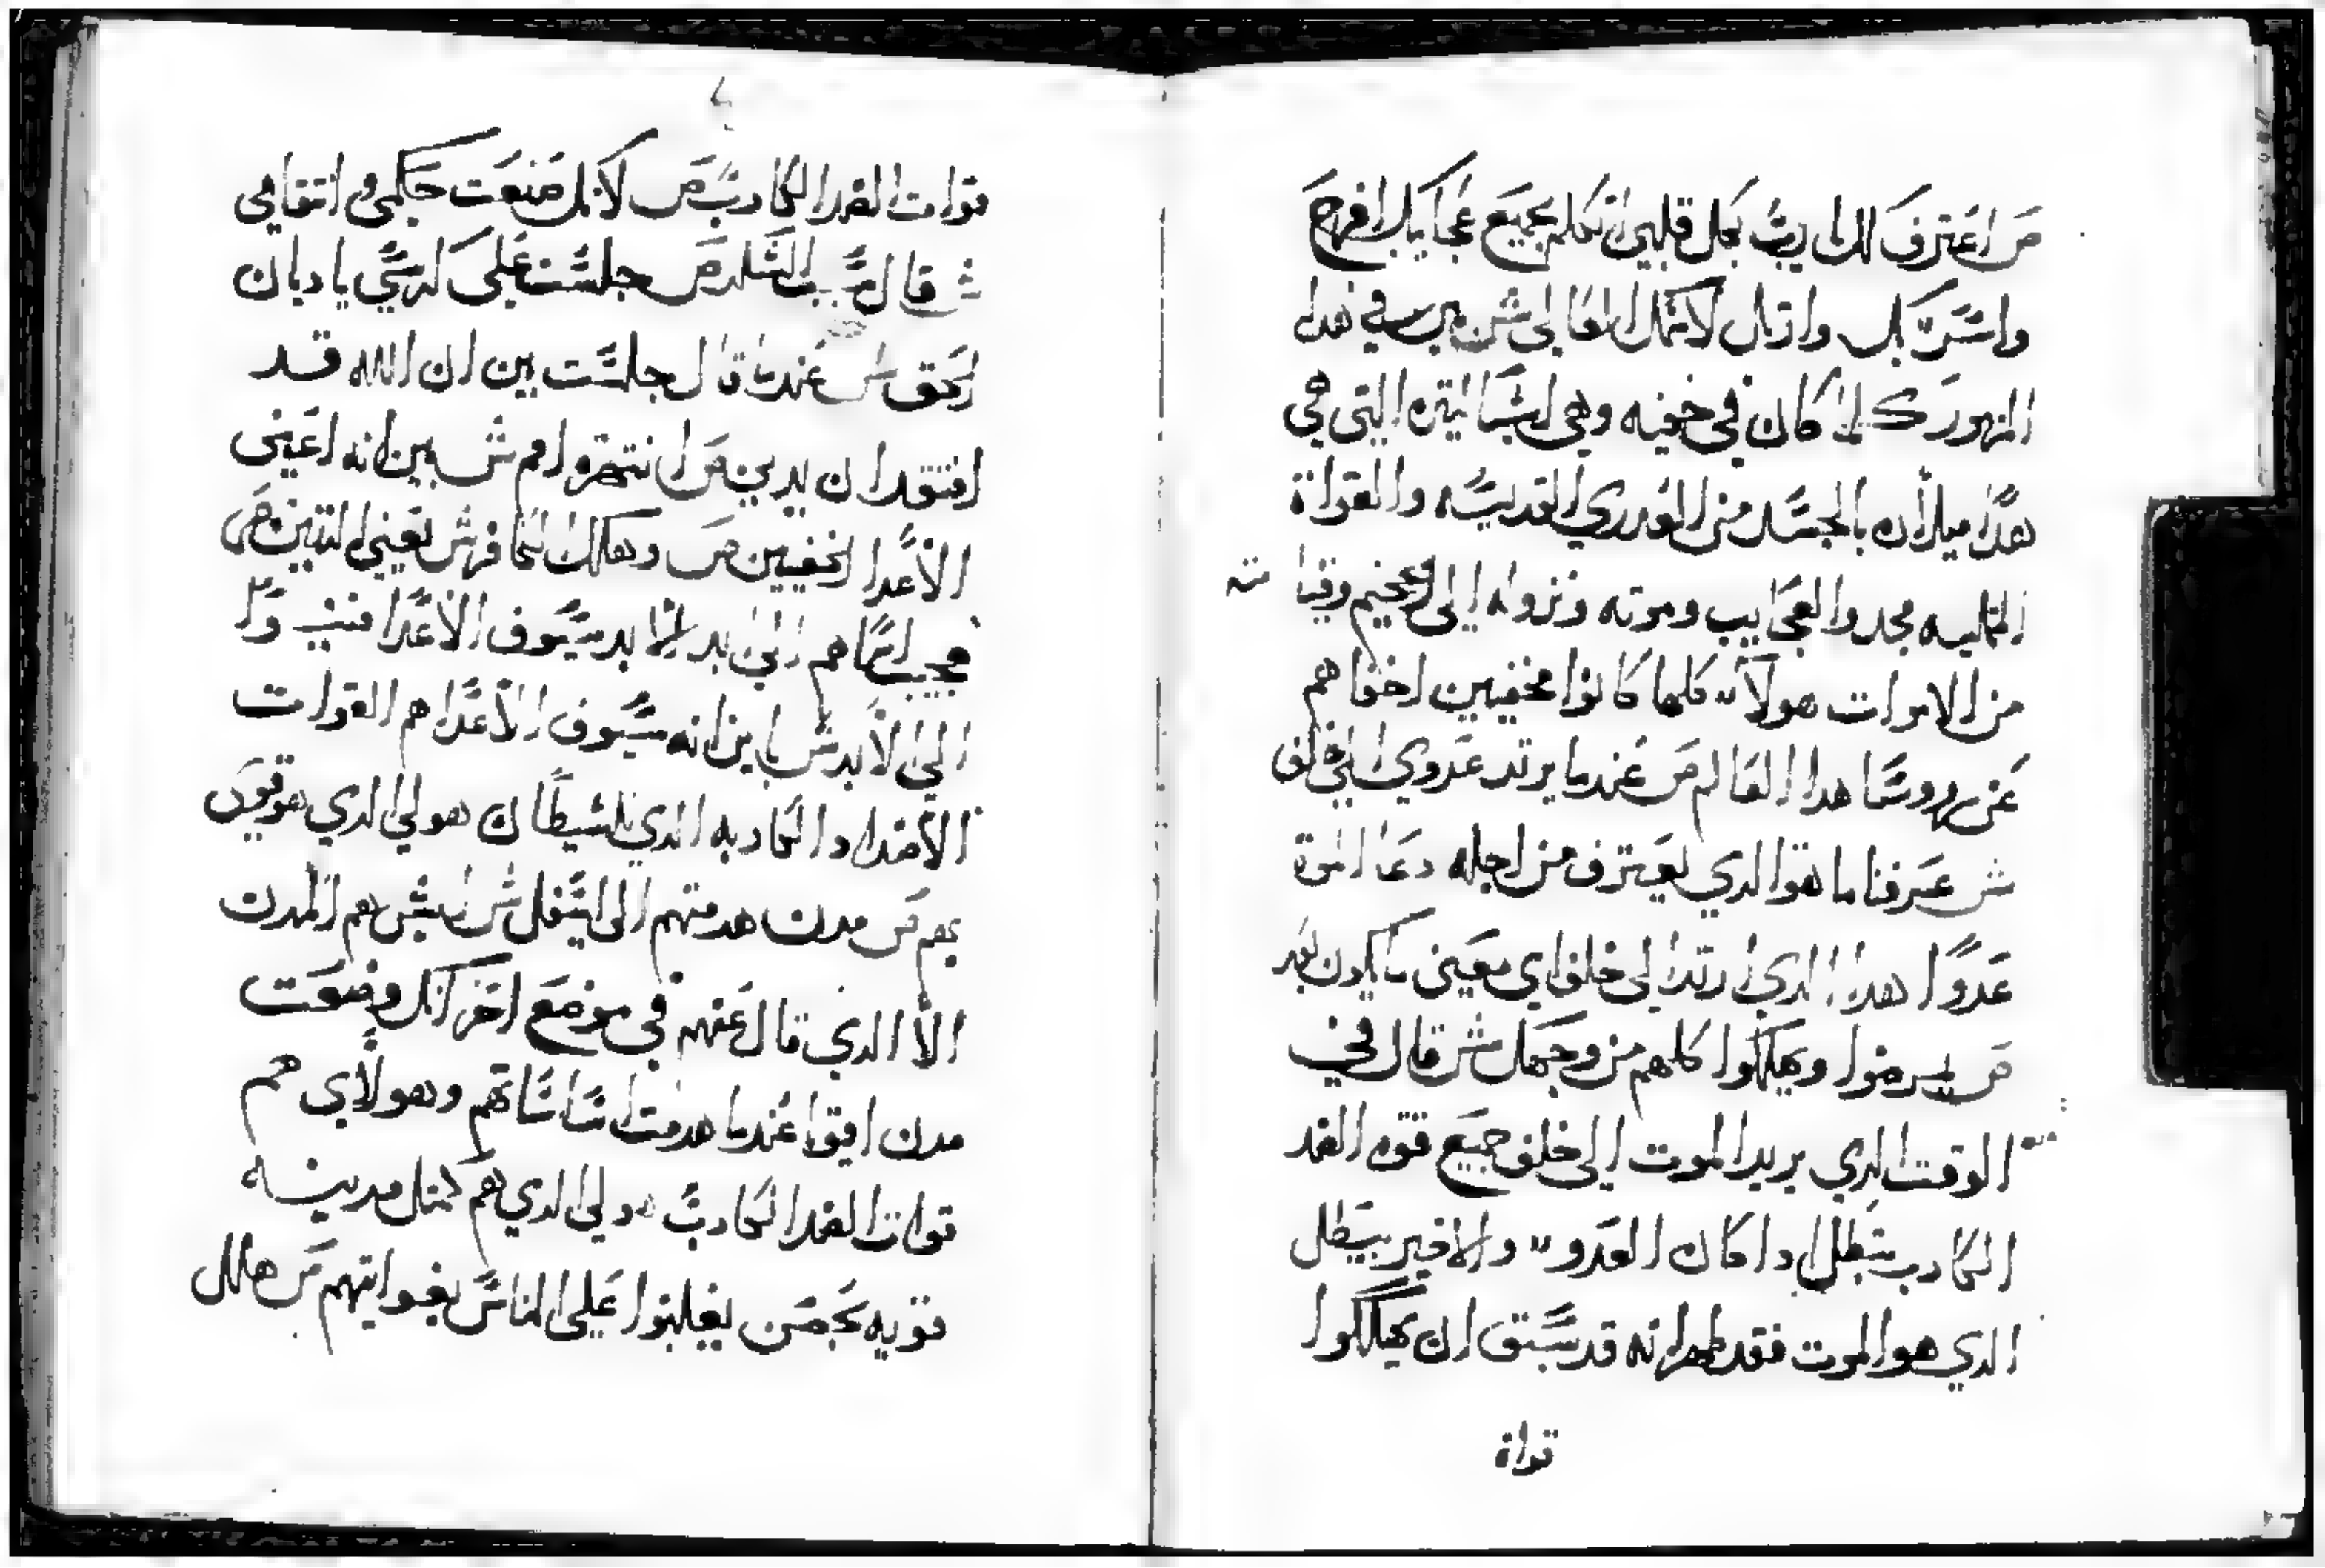 ص اعترف لك يا رب بكل قلبي اتكلم بجميع عجايبك افرح
واسر بك وارتل لاسمك العالي ش في هدا
المزمور كلما كان في خفيه وهي البشاتيره التي هي
هدا ميلاده بالجسد من العدري القديسه والقواة
الماليه مجد والعجايب وموته ونزوله الى الجحيم وقيامته
من الاموات هولآء كلها كانوا مخفيين اخفاهم
عن روسا هدا العالم ص عندما يرتد عدوي الى خلف
ش عرفنا ما هوا الدي يعترف من اجله دعا الموة
عدوًا هدا الدي ارتد الى خلف اي معنى ما يكون بعد
ص يمرضوا ويهلكوا كلهم من وجهك ش قال في
الوقت الدي يريد الموت الى خلف جميع قوه الضد
الكادب ستبطل اداكان العدو والاخير يبطل
الدي هو الموت فقد ظهر انه قد سبق ان يهلكوا
قواة
قوات الضد الكادب ص لانك صنعت حكمي وانتقامي
ش قال ص جلست على الكرسي يا ديان
الحق ش عندما قال جلست بين ان الله قد
افتقد ان يدين ص انتهرة امم ش بين انه اعني
الأعدا الخفيين ص وهلك المنافق ش يعني التنين ص
اسماهم الى الابد سيوف الأعدا فنيت
الى الأبد ش بين انه سيوف الأعدا هم القوات
الأضداد الكادبه الدي للشيطان هولى الدي هو قوي
بهم ص مدن هدمتهم الى اسفل ش ليس هم المدن
الأ الدي قال عنهم في موضع اخر انك وضعت
مدن اقوا عندما هدمت اساساتهم وهولأي هم
قوات الضد الكادب هولى الدي هم كمثل مدينه
قويه بحصن يغلبوا على الناس بغوايتهم ص هلك